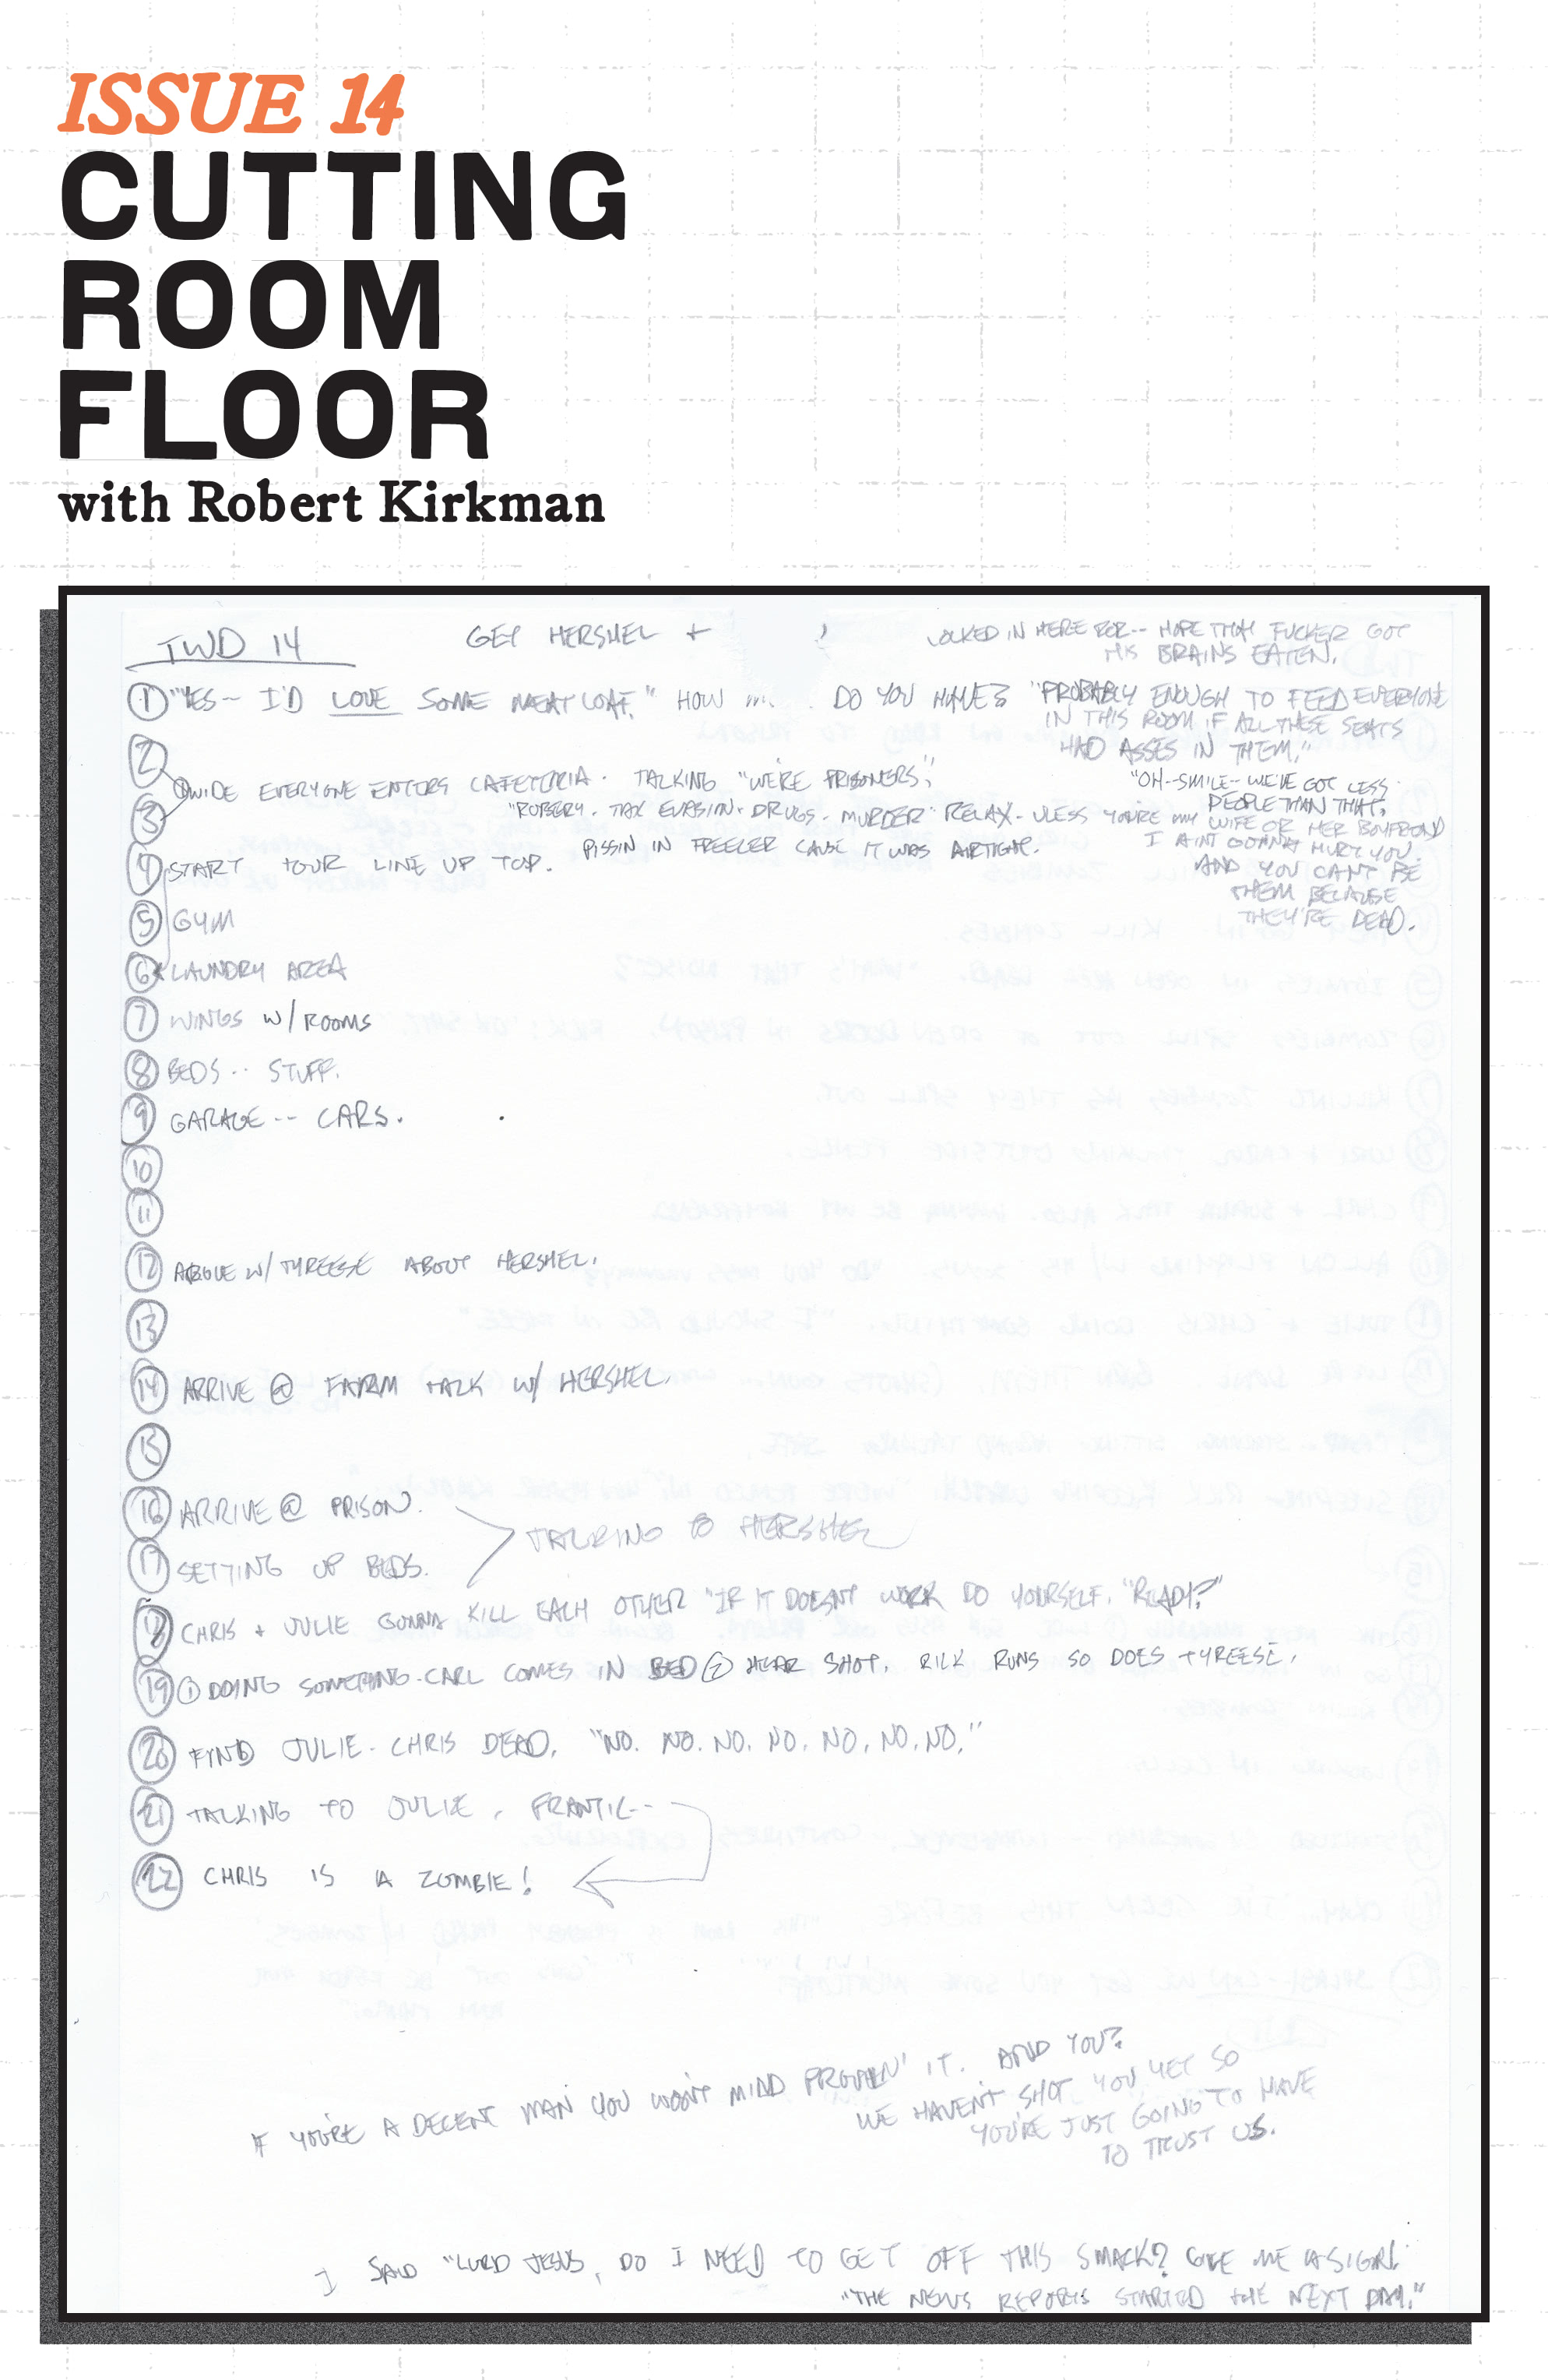 ISSUE 14
CUTTING
ROOM
FLOOR
with Robert Kirkman
TWD 14
GET HERSHEL +
LOCKED IN HERE FOR-- HOPE THAT FUCKER GOT
HIS BRAINS EATEN.
1 "YES-- I'D LOVE SOME MEATLOAF." HOW DO YOU HAVE? "PROBABLY ENOUGH TO FEED EVERYONE
IN THIS ROOM IF ALL THESE SEATS
HAD ASSES IN THEM."
2
WIDE EVERYONE ENTERS CAFETERIA. TALKING "WE'RE PRISONERS."
"OH--SMILE-- WE'VE GOT LESS
PEOPLE THAN THAT."
3
"ROBERY. TAX EVASION. DRUGS. MURDER" RELAX. UNLESS YOU'RE MY WIFE OR HER BOYFRIEND
I AINT GONNA HURT YOU.
AND YOU CAN'T BE
THEM BECAUSE
THEY'RE DEAD.
PISSIN IN FREEZER CAUSE IT WAS AIRTIGHT.
4 START TOUR LINE UP TOP.
5 GYM
6 LAUNDRY AREA
7 WINGS W/ ROOMS
8 BEDS -- STUFF.
9 GARAGE -- CARS.
10
11
12 ARGUE W/ TYREESE ABOUT HERSHEL.
13
14 ARRIVE @ FARM TALK W/ HERSHEL.
15
16 ARRIVE @ PRISON.
TALKING TO HERSHEL
17 SETTING UP BEDS.
18 CHRIS + JULIE GONNA KILL EACH OTHER "IF IT DOESN'T WORK DO YOURSELF. "READY?"
19 1 DOING SOMETHING. CARL COMES IN BED 2 HEAR SHOT. RICK RUNS SO DOES TYREESE.
20 FIND JULIE - CHRIS DEAD. "NO. NO. NO. NO. NO, NO, NO."
21 TALKING TO JULIE, FRANTIC--
22 CHRIS IS A ZOMBIE!
IF YOU'RE A DECENT MAN YOU WON'T MIND PROVEN' IT. AND YOU?
WE HAVEN'T SHOT YOU YET SO
YOU'RE JUST GOING TO HAVE
TO TRUST US.
I SAID "LORD JESUS, DO I NEED TO GET OFF THIS SMACK? GIVE ME A SIGN.
"THE NEWS REPORTS STARTED THE NEXT DAY."